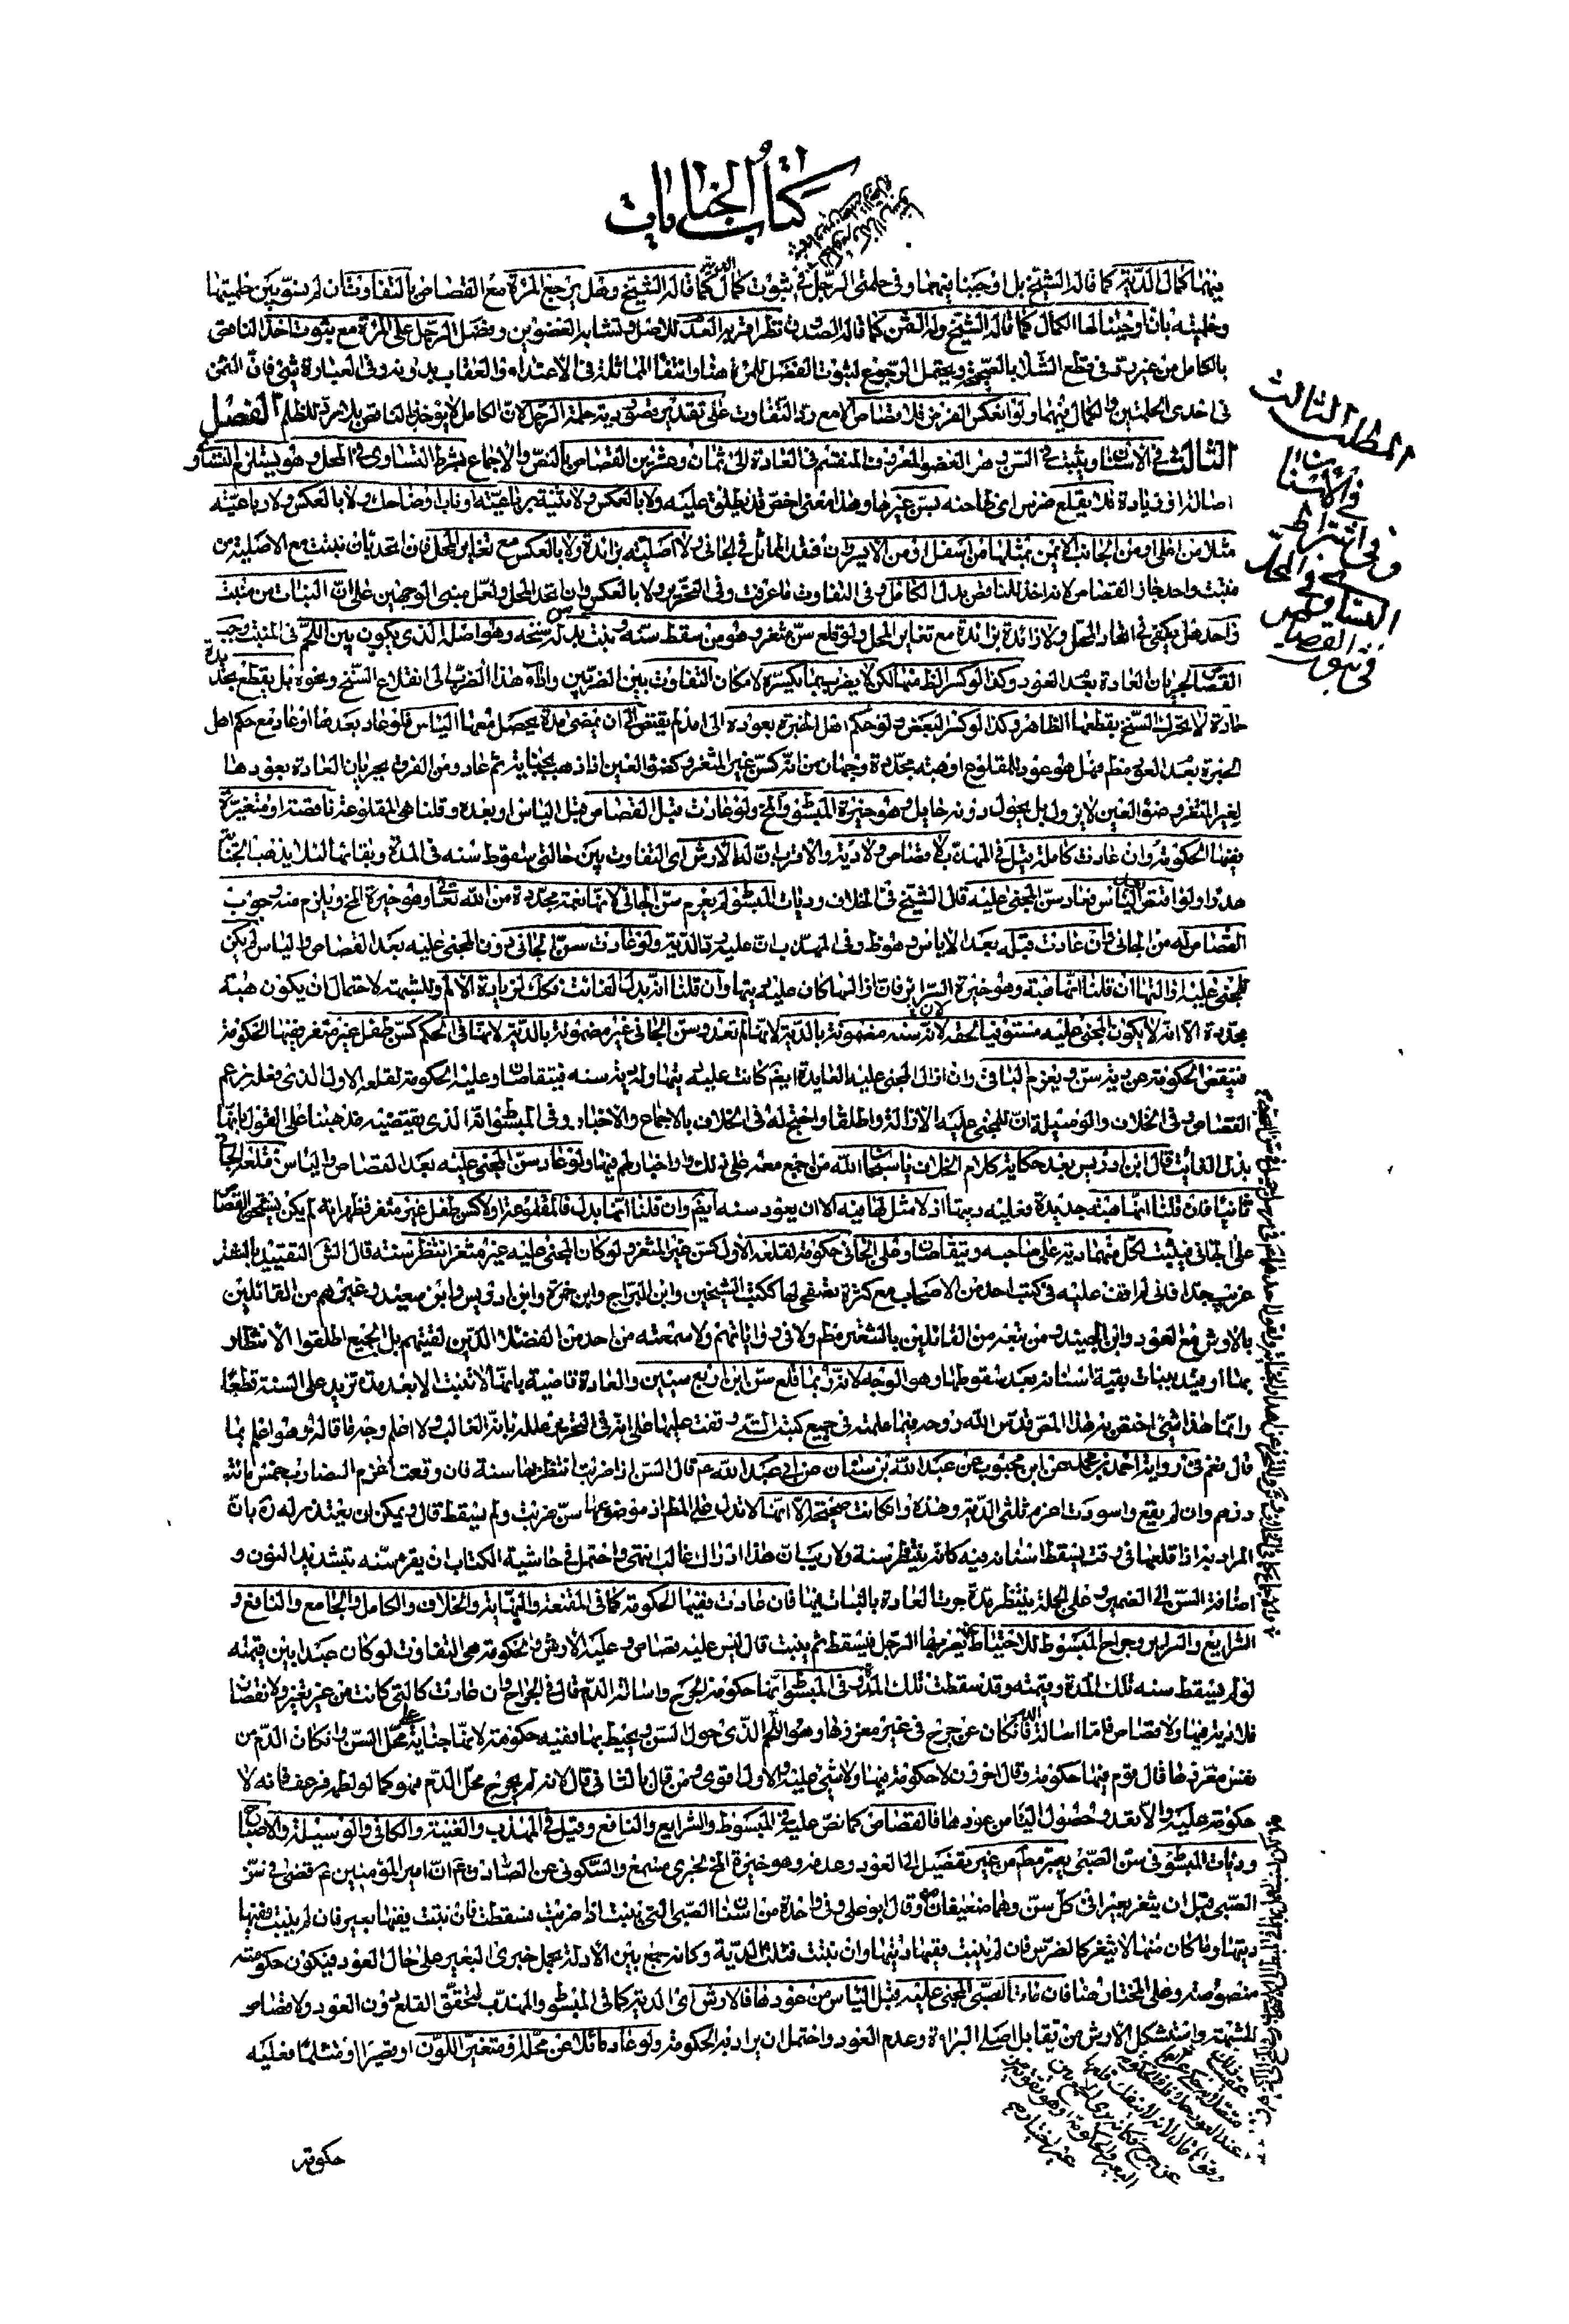 كتاب الجنايات
فيهما كمال الدية كما قاله الشيخ بل اوجبنا فيهما وفي حلمتي الرجل في ثبوت كمال الدية كما قاله الشيخ وهل يرجع المرأة مع القصاص بالتفاوت ان لم نسوّ بين حلمتيها
وحلمتيه بان اوجبنا لها الكمال كما قاله الشيخ وله الثمن كما قاله الصدوق نظر اقربه العدم للاصل وتشابه العضوين وبفضل الرجل على المرأة مع ثبوت اخذ الناقص
بالكامل من غير رد في قطع الشلاء بالصحيحة ويحتمل الرجوع لثبوت الفضل للمرأة هنا وانتفاء المماثلة في الاعتداء والعقاب بدونه وفي العبارة شيء فان الثمن
في احدى الحلمتين والكمال فيهما ولو انعكس الفرض فلا قصاص الا مع رد التفاوت على تقدير نقص دية حلمة الرجل لان الكامل لا يؤخذ بالناقص بلا رد للظلم الفصل
الثالث في الاسنان ويثبت في السن وهو العضو المعروف المنقسم في العادة الى ثمان وعشرين القصاص بالنص والاجماع بشرط التساوي في المحل وهو يستلزم التساوي
اصالة او زيادة فلا يقلع ضرس اي طاحنة بسن غيرها وهذا معنى اخص قد يطلق عليه ولا بالعكس ولا ثنية برباعية او ناب او ضاحك ولا بالعكس ولا رباعية
مثلا من اعلى او من الجانب الايمن بمثلها من اسفل او من الايسر لفقد التماثل في الجاني ولا اصلية بزائدة ولا بالعكس مع تغاير المحل فان اتحد بان نبتت مع الاصلية من
منبت واحد جاز القصاص لانه اخذ للناقص بدل الكامل وفي التفاوت ما عرفت وفي التحرير ولا بالعكس وان اتحد المحل ولعل مبنى الوجهين على ان النبات من منبت
واحد هل يكفي في اتحاد المحل ولا زائدة بزائدة مع تغاير المحل ولو قلع سن مثغر وهو من سقط سنه ونبت بدله سن بسنخه وهو اصله الذي يكون بين اللحم في المنبت وجب
القصاص لجريان العادة بعدم العود وكذا لو كسر الظاهر منها لكن لا يضرب بما يكسره لامكان التفاوت بين الضربين وادّاء هذا الضرب الى انقلاع السنخ ونحوه بل يقطع بحديدة
حادة لا تحرك السنخ بقطعها الظاهر وكذا لو كسر البعض ولو حكم اهل الخبرة بعوده الى امد لم يقتص الى ان يمضي مدة يحصل معها الياس فلو عاد بعدها او عاد مع حكم اهل
الخبرة بعدم العود مطلقا فهل هو عود للمقلوع او هبة مجددة وجهان من انه كسن غير المثغر وكضوء العين اذا ذهب بجناية ثم عاد ومن الفرق بجريان العادة بعودها
لغير المثغر وضوء العين لا يزول بل يحول دونه حايل وهو خيرة المبسوط والخ ولو عادت قبل القصاص قبل الياس او بعده وقلنا هي المقلوعة ناقصة او متغيرة
ففيها الحكومة وان عادت كاملة قيل في المهذب لا قصاص ولا دية والاقرب ان له الارش اي التفاوت بين حالتي سقوط سنه في المدة وبقائها لئلا يذهب الجناية
هدرا ولو اقتص بعد الياس فعاد سن المجني عليه قال الشيخ في الخلاف وديات المبسوط لم يغرم سن الجاني لانها نعمة مجددة من الله تعالى وهو خيرة الخ ويلزم منه وجوب
القصاص له من الجاني وان عادت قبله بعد الاياس وهو ظ وفي المهذب ان عليه رد الدية ولو عادت سن الجاني دون المجني عليه بعد القصاص والياس لم يكن
للمجني عليه ازالتها ان قلنا انها هبة وهو خيرة السرائر فان ازالها كان عليه ديتها وان قلنا انه بدل الفائت فكك لزيادة الالم وللشبهة لاحتمال ان يكون هبة
مجددة الا انه لا يكون المجني عليه مستوفيا لحقه لان سنه مضمونة بالدية لانها لم تعد وسن الجاني غير مضمونة بالدية لانها في الحكم كسن طفل غير مثغر ففيها الحكومة
فينقص الحكومة عن دية سن ويغرم الباقي وان ازال المجني عليه العايدة ايضا كانت عليه ديتها وله دية سنه فيتقاصان وعليه الحكومة لقلعه الاول الذي فعله بزعم
القصاص وفي الخلاف والوسيلة ان للمجني عليه الازالة واطلقا واحتج له في الخلاف بالاجماع والاخبار وفي المبسوط انه الذي يقتضيه مذهبنا على القول بانها
بدل الفايت قال ابن ادريس بعد حكاية كلام الخلاف يا سبحان الله من اجمع معه على ذلك واي اخبار لهم فيها ولو عاد سن المجني عليه بعد القصاص والياس فقلعه الجاني
ثانيا فان قلنا انها هبة جديدة فعليه ديتها اذ لا مثل لها فيه الا ان يعود سنه ايضا وان قلنا انها بدل فالمقلوعة اولا كسن طفل غير مثغر فظهر انه لم يكن يستحق القصاص
على الجاني فيثبت لكل منهما دية على صاحبه ويتقاصان وعلى الجاني حكومة لقلعه الاول كسن غير المثغر ولو كان المجني عليه غير مثغر انتظر سنة قال الش التقييد بالسنة
غريب جدا فاني لم اقف عليه في كتب احد من الاصحاب مع كثرة تصفحي لها ككتب الشيخين وابن البراج وابن حمزة وابن ادريس وابن سعيد وغيرهم من القائلين
بالارش مع العود وابن الجنيد ومن تبعه من القائلين بالبعير مطلقا ولا في رواياتهم ولا سمعته من احد من الفضلاء الذين لقيتهم بل الجميع اطلقوا الانتظار
بها او قيد بنبات بقية اسنانه بعد سقوطها وهو الوجه لانه ربما قلع سن ابن اربع سنين والعادة قاضية بانها لا تنبت الا بعد مدة تزيد على السنة قطعا
وانما هذا شيء اختص به هذا المص قدس الله روحه فيما علمته في جميع كتبه التي وقفت عليها حتى انه في التحرير علله بانه الغالب ولا اعلم وجه ما قاله وهو اعلم بما
قال نعم في رواية احمد بن محمد عن ابن محبوب عن عبد الله بن سنان عن ابي عبد الله ع قال السن اذا ضربت انتظر بها سنة فان وقعت اغرم الضارب خمسمائة
درهم وان لم يقع واسودت اغرم ثلثي الدية وهذه وان كانت صحيحة الا انها لا تدل على المط اذ موضوعها سن ضربت ولم يسقط قال ويمكن ان يعتذر له ره بان
المراد به اذا قلعها في وقت يسقط اسنانه فيه كانه ينتظر سنة ولا ريب ان هذا اذا ذاك غالب انتهى واحتمل في حاشية الكتاب ان يقرء سنّه بتشديد النون و
اضافة السن الى الضمير وعلى الجملة ينتظر مدة جرت العادة بالنبات فيها فان عادت ففيها الحكومة كما في المقنعة والنهاية والخلاف والكامل والجامع والنافع و
الشرايع والسرائر وجراح المبسوط للاحتياط يضربها الرجل فيسقط ثم ينبت قال ليس عليه قصاص وعليه الارش والحكومة هي التفاوت لو كان عبدا بين قيمته
لو لم يسقط سنه تلك المدة وقيمته وقد سقطت تلك المدة وفي المبسوط انها حكومة الجرح واسالة الدم قال في الجراح وان عادت كالتي كانت من غير تغير ولا نقصان
فلا دية فيها ولا قصاص فاما اسالة الدم فان كان عن جرح في غير مغرزها وهو اللحم الذي حول السن ويحيط بها ففيه حكومة لانها جناية على محل السن وان كان الدم من
نفس مغرزها قال قوم فيها حكومة وقال اخرون لا حكومة فيها ولا شيء عليه والاول اقوى ومن قال بالثاني قال لانه لم يجرح محل الدم فهو كما لو لطمه فرعف فانه لا
حكومة عليه والا تعد وحصول الياس من عودها فالقصاص كما نص عليه في المبسوط والشرايع والنافع وقيل في المهذب والغنية والكافي والوسيلة والاصباح
وديات المبسوط في سن الصبي بعير مطلقا من غير تفصيل الى العود وعدمه وهو خيرة الخ لخبري مسمع والسكوني عن الصادق ع ان امير المؤمنين ع قضى في سن
الصبي قبل ان يثغر بعيرا في كل سن وهما ضعيفان وقال ابو علي وفي واحدة من اسنان الصبي التي ينبت اذا ضربت فسقطت فان نبتت ففيها بعير فان لم ينبت ففيها
ديتها وما كان منها لا يثغر كالضرس فان لم ينبت ففيها ديتها وان نبتت فثلث الدية وكانه جمع بين الادلة بحمل خبري البعير على حال العود فيكون حكومته
منصوصة وعلى المختار هنا فان مات الصبي المجني عليه قبل الياس من عودها فالارش اي الدية كما في المبسوط والمهذب لتحقق القلع دون العود ولا قصاص
للشبهة واستشكل الارش من تقابل اصلي البراءة وعدم العود واحتمل ان يراد به الحكومة ولو عاد مائلا عن محله او متغير اللون او قصيرا او منثلما فعليه
حكومة
المطلب الثالث
في الاسنان
وفي اشتراط
التساوي في المحل
في ثبوت القصاص